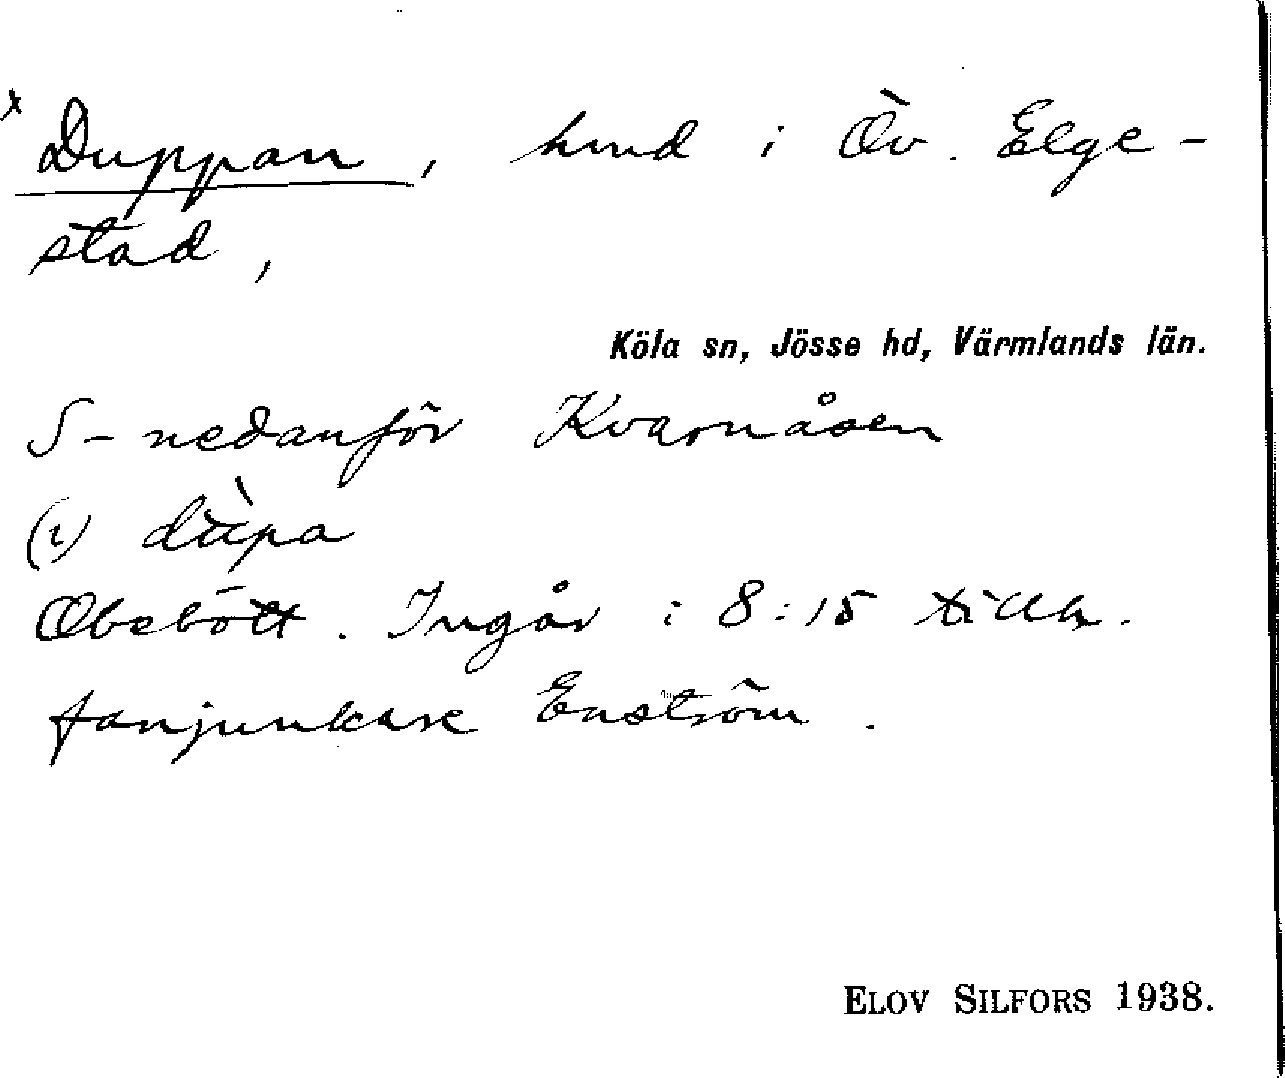 x Duppan, lund i Öv. Elge-
stad,
Köla sn, Jösse hd, Värmlands län.
S-nedanför Kvarnåsen
(i) dùpa
Obebött. Ingår i 8:15 tillh.
fanjunkare Enström.
ELOV SILFORS 1938.